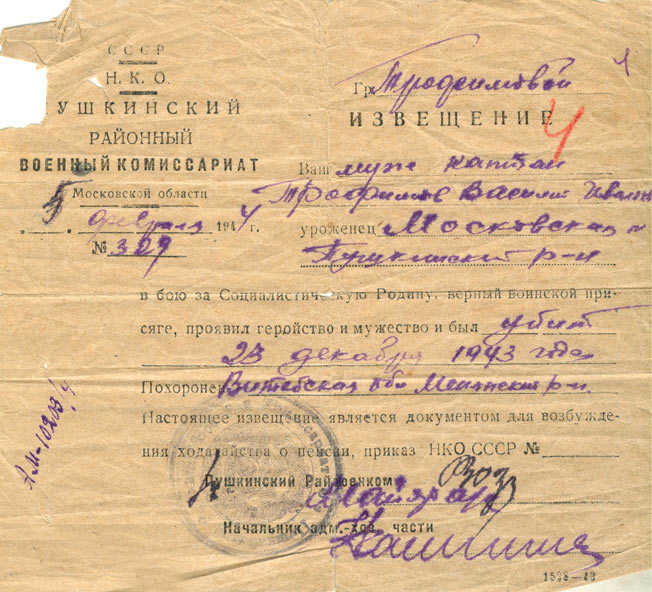 СССР
Н.К.О.
ПУШКИНСКИЙ
РАЙОННЫЙ
ВОЕННЫЙ КОМИССАРИАТ
Московской области
5 февраля 1944 г.
№ 329
Гр. Трофимовой
ИЗВЕЩЕНИЕ
4
Ваш муж капитан
Трофимов Василий Иванов
уроженец Московская
Пушкинский р-н
в бою за Социалистическую Родину, верный воинской при-
сяге, проявил геройство и мужество и был убит
23 декабря 1943 года
Похоронен Витебская обл
р-н.
Настоящее извещение является документом для возбужде-
ния ходатайства о пенсии, приказ НКО СССР №
Пушкинский Райвоенком
Майор
Начальник адм.-хоз. части